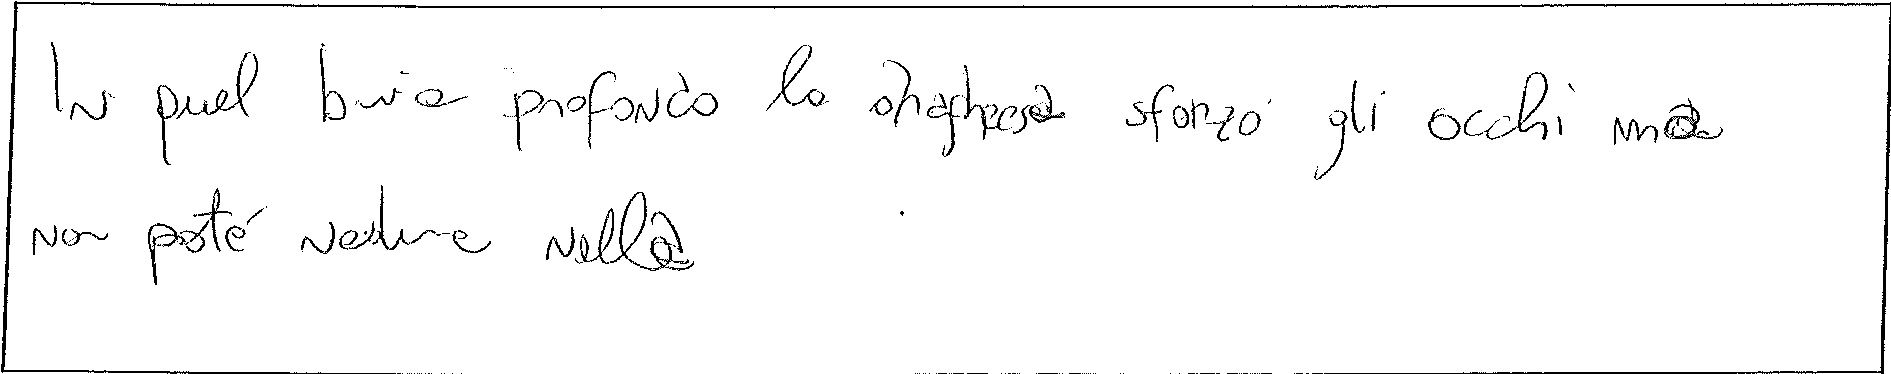 In quel buio profondo la sforzò gli occhi ma
non poté vedere nulla